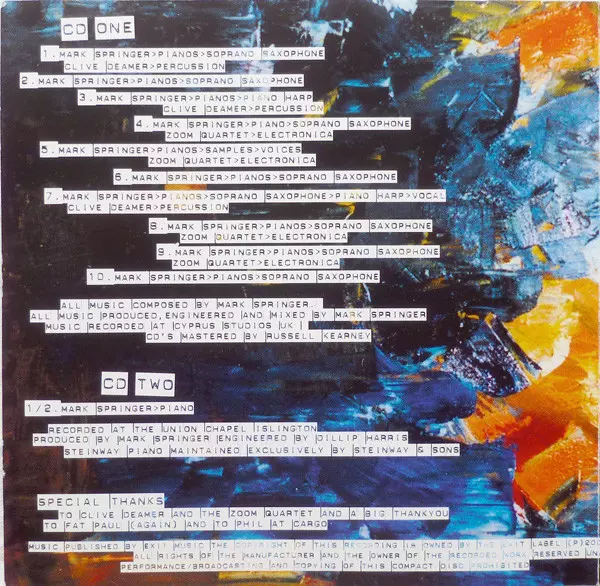 CD ONE
1. MARK SPRINGER>PIANOS>SOPRANO SAXOPHONE
CLIVE DEAMER>PERCUSSION
2. MARK SPRINGER>PIANOS>SOPRANO SAXOPHONE
3. MARK SPRINGER>PIANOS>PIANO HARP
CLIVE DEAMER>PERCUSSION
4. MARK SPRINGER>PIANOS>SOPRANO SAXOPHONE
ZOOM QUARTET>ELECTRONICA
5. MARK SPRINGER>PIANOS>SAMPLES>VOICES
ZOOM QUARTET>ELECTRONICA
6. MARK SPRINGER>PIANOS>SOPRANO SAXOPHONE
7. MARK SPRINGER>PIANOS>SOPRANO SAXOPHONE>PIANO HARP>VOCAL
CLIVE DEAMER>PERCUSSION
8. MARK SPRINGER>PIANOS>SOPRANO SAXOPHONE
ZOOM QUARTET>ELECTRONICA
9. MARK SPRINGER>PIANOS>SOPRANO SAXOPHONE
ZOOM QUARTET>ELECTRONICA
10. MARK SPRINGER>PIANOS>SOPRANO SAXOPHONE
ALL MUSIC COMPOSED BY MARK SPRINGER
ALL MUSIC PRODUCED, ENGINEERED AND MIXED BY MARK SPRINGER
MUSIC RECORDED AT CYPRUS STUDIOS UK
CD'S MASTERED BY RUSSELL KEARNEY
CD TWO
1/2. MARK SPRINGER>PIANO
RECORDED AT THE UNION CHAPEL ISLINGTON
PRODUCED BY MARK SPRINGER ENGINEERED BY DILLIP HARRIS
STEINWAY PIANO MAINTAINED EXCLUSIVELY BY STEINWAY & SONS
SPECIAL THANKS
TO CLIVE DEAMER AND THE ZOOM QUARTET AND A BIG THANKYOU
TO FAT PAUL (AGAIN) AND TO PHIL AT CARGO
MUSIC PUBLISHED BY EXIT MUSIC THE COPYRIGHT OF THIS RECORDING IS OWNED BY THE EXIT LABEL (P)200
ALL RIGHTS OF THE MANUFACTURER AND THE OWNER OF THE RECORDED WORK RESERVED UN
PERFORMANCE/BROADCASTING AND COPYING OF THIS COMPACT DISC PROHIBITED